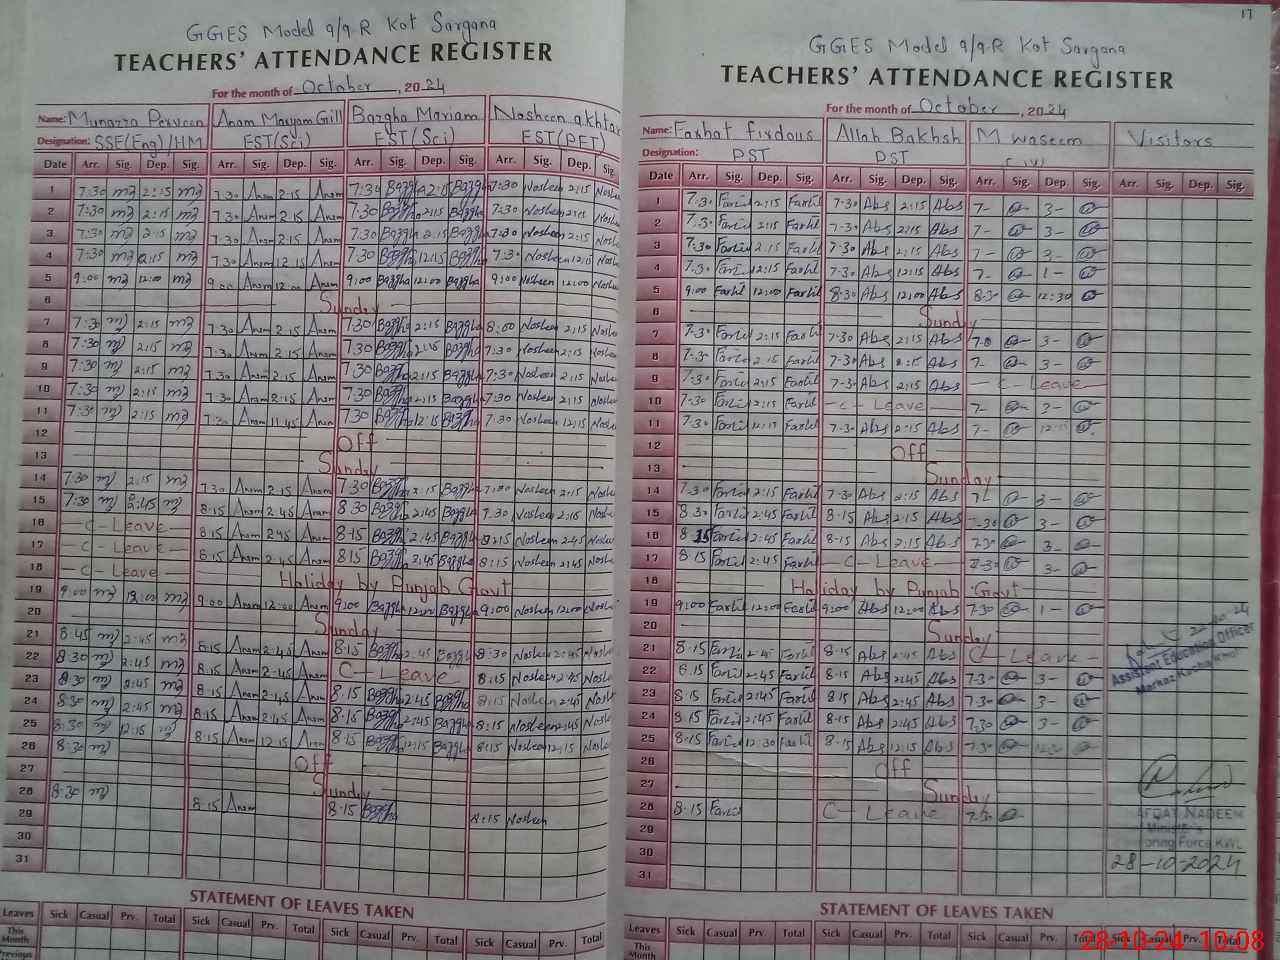 GGES Model 9/9-R Kot Sargana
TEACHERS' ATTENDANCE REGISTER
For the month of October, 2024
Name: Munazza Perveen Anam Maryam Gill Bazgha Mariam Nosheen akhtar
Designation: SSE(Eng)/HM EST(Sci) EST(Sci) EST(PET)
Date Arr. Sig. Dep. Sig. Arr. Sig. Dep. Sig. Arr. Sig. Dep. Sig. Arr. Sig. Dep. Sig.
1 7:30 2:15 7:30 Anam 2:15 Anam 7:30 Bazgha 2:15 Bazgha 7:30 Nosheen 2:15 Noshe
2 7:30 2:15 7:30 Anam 2:15 Anam 7:30 Bazgha 2:15 Bazgha 7:30 Nosheen 2:15 Noshe
3 7:30 2:15 7:30 Anam 2:15 Anam 7:30 Bazgha 2:15 Bazgha 7:30 Nosheen 2:15 Noshe
4 7:30 7:30 Anam 12:15 Anam 7:30 Bazgha 12:15 Bazgha 7:30 Nosheen 12:15 Noshe
5 9:00 12:00 9:00 Anam 12:00 Anam 9:00 Bazgha 12:00 Bazgha 9:00 Nosheen 12:00 Noshe
6 Sunday
7 7:30 2:15 7:30 Anam 2:15 Anam 7:30 Bazgha 2:15 Bazgha 8:00 Nosheen 2:15 Noshe
8 7:30 2:15 7:30 Anam 2:15 Anam 7:30 Bazgha 2:15 Bazgha 7:30 Nosheen 2:15 Noshe
9 7:30 2:15 7:30 Anam 2:15 Anam 7:30 Bazgha 2:15 Bazgha 7:30 Nosheen 2:15 Noshe
10 7:30 2:15 7:30 Anam 2:15 Anam 7:30 Bazgha 2:15 Bazgha 7:30 Nosheen 2:15 Noshe
11 7:30 2:15 7:30 Anam 11:45 Anam 7:30 Bazgha 12:15 Bazgha 7:30 Nosheen 12:15 Noshe
12 Off
13 Sunday
14 7:30 2:15 7:30 Anam 2:15 Anam 7:30 Bazgha 2:15 Bazgha Nosheen 2:15 Noshe
15 7:30 2:45 8:15 Anam 2:45 Anam 8:30 Bazgha 2:45 Bazgha 7:30 Nosheen 2:15 Noshe
16 C-Leave 8:15 Anam 2:45 Anam 8:15 Bazgha 2:45 Bazgha 8:15 Nosheen 2:45 Noshe
17 C-Leave 8:15 Anam 2:45 Anam 8:15 Bazgha 2:45 Bazgha 8:15 Nosheen 2:45 Noshe
18 C-Leave Holiday by Punjab Govt
19 9:00 12:00 9:00 Anam 12:00 Anam 9:00 Bazgha 12:00 Bazgha 9:00 Nosheen 12:00 Noshe
20 Sunday
21 8:45 2:45 8:15 Anam 2:45 Anam 8:15 Bazgha 2:45 Bazgha 8:30 Nosheen 2:45 Noshe
22 8:30 2:45 8:15 Anam 2:45 Anam C-Leave 8:15 Nosheen 2:45 Noshe
23 8:30 2:45 8:15 Anam 2:45 Anam 8:15 Bazgha 2:45 Bazgha 8:15 Nosheen 2:45 Nosh
24 8:30 2:45 8:15 Anam 2:45 Anam 8:15 Bazgha 2:45 Bazgha 8:15 Nosheen 2:45 Noshe
25 8:30 12:15 8:15 Anam 12:15 Anam 8:15 Bazgha 12:15 Bazgha 8:15 Nosheen 12:15 Noshe
26 8:30 Off
27 Sunday
28 8:30 8:15 Anam 8:15 Bazgha 8:15 Nosheen
29
30
31
STATEMENT OF LEAVES TAKEN
Leaves Sick Casual Prv. Total Sick Casual Prv. Total Sick Casual Prv. Total Sick Casual Prv. Total
This Month
Previous
17
GGES Model 9/9-R Kot Sargana
TEACHERS' ATTENDANCE REGISTER
For the month of October, 2024
Name: Farhat firdous Allah Bakhsh M waseem Visitors
Designation: PST PST
Date Arr. Sig. Dep. Sig. Arr. Sig. Dep. Sig. Arr. Sig. Dep. Sig. Arr. Sig. Dep. Sig.
1 7:30 Farht 2:15 Farht 7:30 Abs 2:15 Abs 7- 3-
2 7:30 Farht 2:15 Farht 7:30 Abs 2:15 Abs 7- 3-
3 7:30 Farht 2:15 Farht 7:30 Abs 2:15 Abs 7- 3-
4 7:30 Farht 12:15 Farht 7:30 Abs 12:15 Abs 7- 1-
5 9:00 Farht 12:00 Farht 8:30 Abs 12:00 Abs 8:30 12:30
6 Sunday
7 7:30 Farht 2:15 Farht 7:30 Abs 2:15 Abs 3-
8 7:30 Farht 2:15 Farht 7:30 Abs 2:15 Abs 7- 3-
9 7:30 Farht 2:15 Farht 7:30 Abs 2:15 Abs C-Leave
10 7:30 Farht 2:15 Farht C-Leave 7- 3-
11 7:30 Farht 12:15 Farht 7:30 Abs 2:15 Abs 7- 12:15
12 Off
13 Sunday
14 7:30 Farht 2:15 Farht 7:30 Abs 2:15 Abs 3-
15 8:30 Farht 2:45 Farht 8:15 Abs 2:15 Abs 3-
16 8:15 Farht 2:45 Farht 8:15 Abs 2:15 Abs 7:30 3-
17 8:15 Farht 2:45 Farht C-Leave 7:30 3-
18 Holiday by Punjab Govt
19 9:00 Farht 12:00 Farht 9:00 Abs 12:00 Abs 7:30 1-
20 Sunday
21 8:15 Farht 2:45 Farht 8:15 Abs 2:45 Abs C-Leave
22 8:15 Farht 2:45 Farht 8:15 Abs 2:45 Abs 7:30 3-
23 8:15 Farht 2:45 Farht 8:15 Abs 2:45 Abs 7:30 3-
24 8:15 Farht 2:45 Farht 8:15 Abs 2:45 Abs 7:30 3-
25 8:15 Farht 12:30 Farht 8:15 Abs 12:15 Abs 7:30 12:30
26 Off
27 Sunday
28 8:15 Farht C-Leave 7:30
29
30
31
Assistant Education Officer
Markaz
AFQAT NADEEM
oring Force KWL
28-10-2024
STATEMENT OF LEAVES TAKEN
Leaves Sick Casual Prv. Total Sick Casual Prv. Total Sick Casual Prv. Total Sick Casual Prv. Total
This Month
28-10-24 10:08